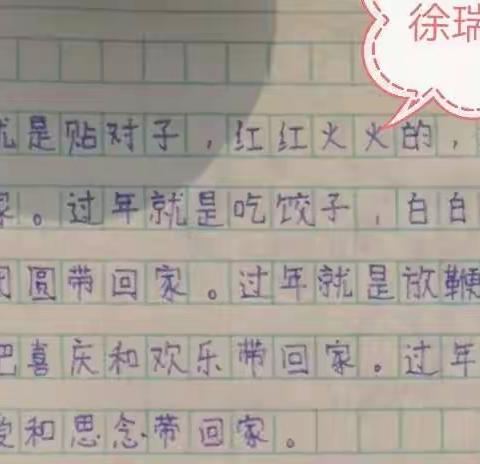 徐瑞
就是贴对子，红红火火的，
家。过年就是吃饺子，白白
团圆带回家。过年就是放鞭
把喜庆和欢乐带回家。过年
爱和思念带回家。